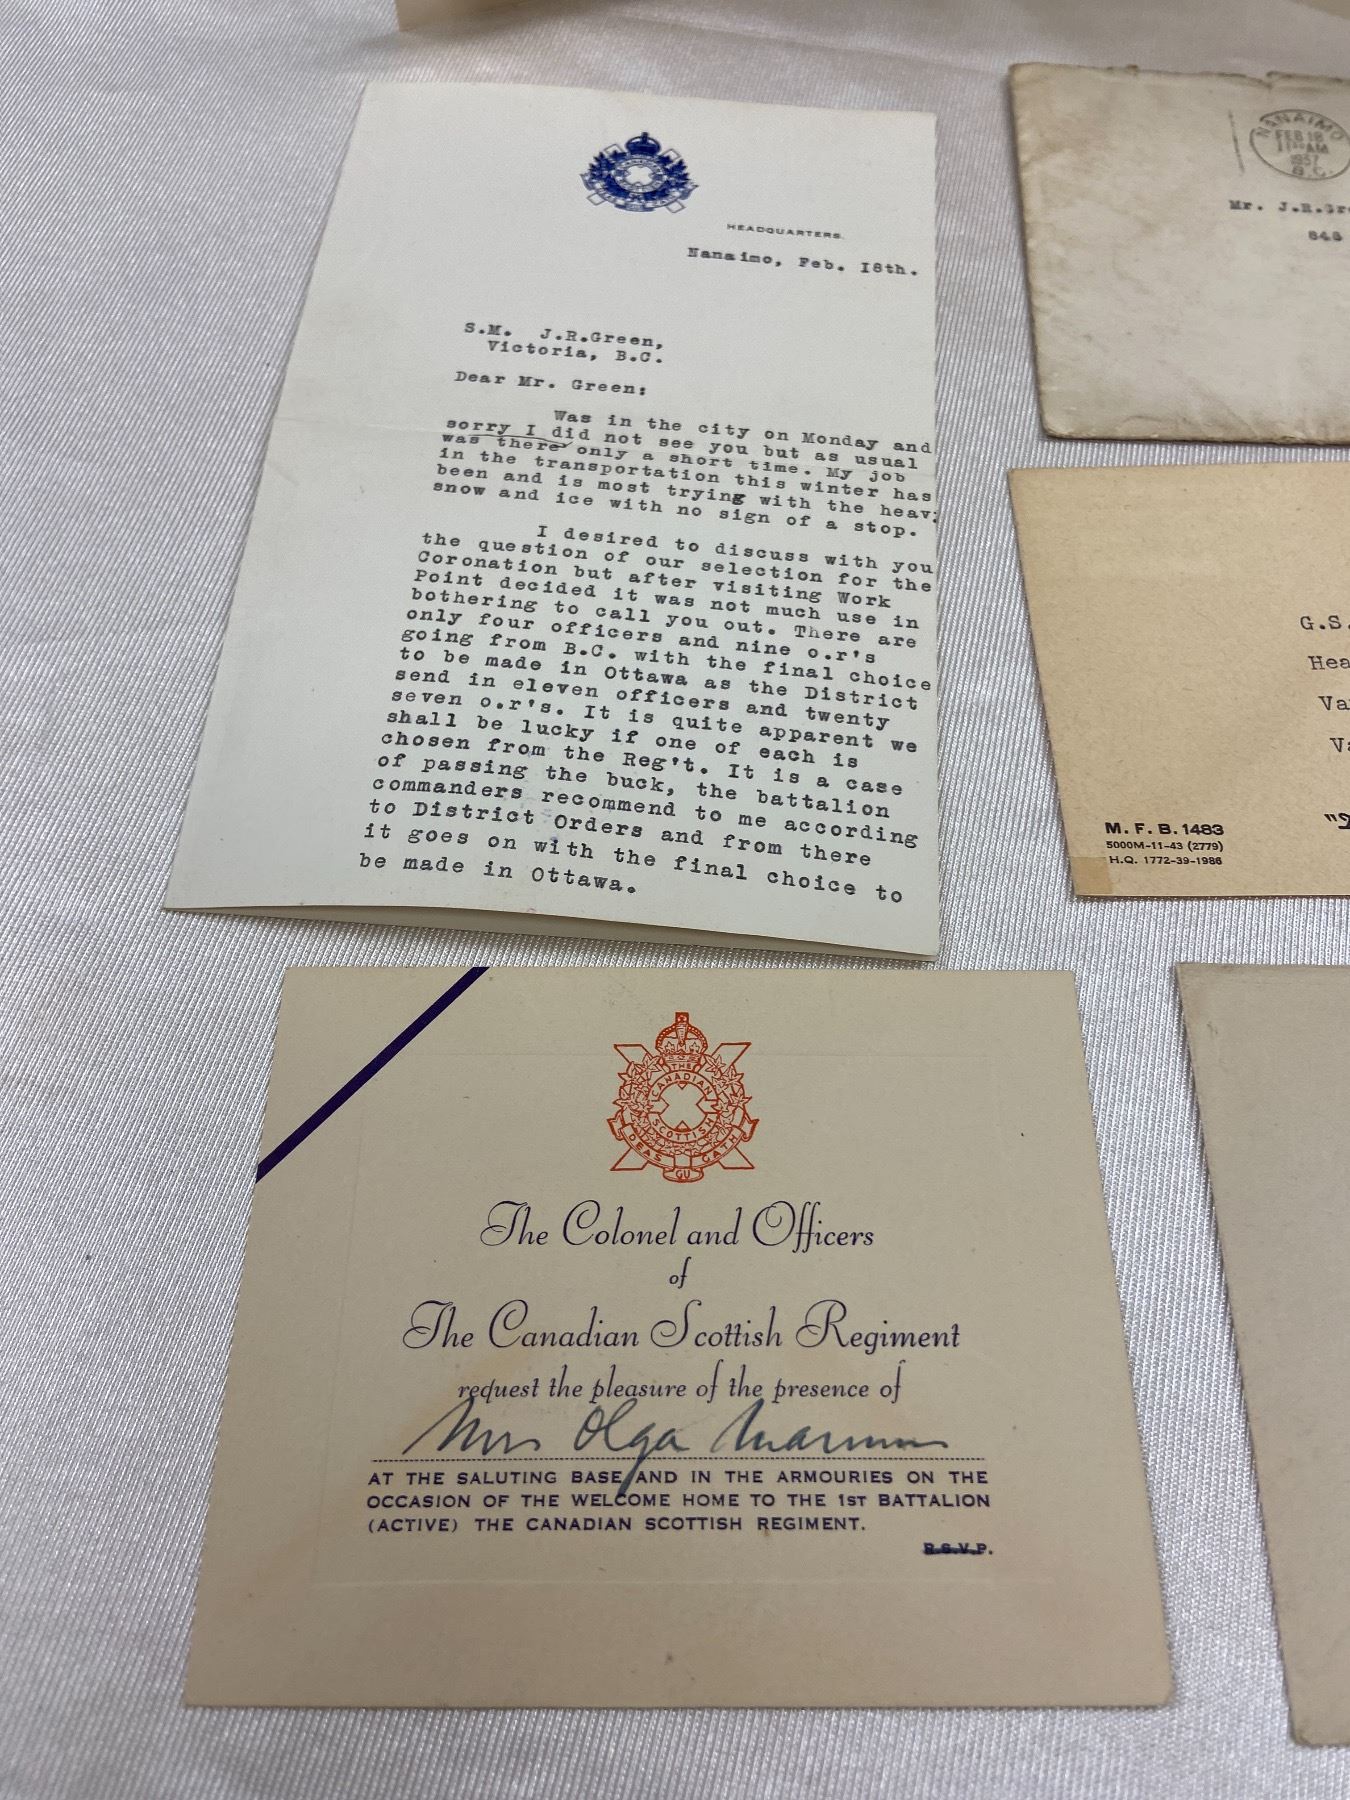 HEADQUARTERS.
Nanaimo, Feb. I8th.
S.M. J.R.Green,
Victoria, B.C.
Dear Mr. Green;
Was in the city on Monday and
sorry I did not see you but as usual
was there only a short time. My job
in the transportation this winter has
been and is most trying with the heav
snow and ice with no sign of a stop.
I desired to discuss with you
the question of our selection for the
Coronation but after visiting Work
Point decided it was not much use in
bothering to call you out. There are
only four officers and nine o.r's
going from B.C. with the final choice
to be made in Ottawa as the District
send in eleven officers and twenty
seven o.r's. It is quite apparent we
shall be lucky if one of each is
chosen from the Reg't. It is a case
of passing the buck, the battalion
commanders recommend to me according
to District Orders and from there
it goes on with the final choice to
be made in Ottawa.
NANAIMO
FEB 18
AM
1937
B.C.
Mr. J.R.Gre
848
G.S.
Hea
Va
Va
M. F. B. 1483
5000M-11-43 (2779)
H.Q. 1772-39-1986
THE
CANADIAN
SCOTTISH
DEAS GU CATH
The Colonel and Officers
of
The Canadian Scottish Regiment
request the pleasure of the presence of
Mrs Olga
AT THE SALUTING BASE AND IN THE ARMOURIES ON THE
OCCASION OF THE WELCOME HOME TO THE 1ST BATTALION
(ACTIVE) THE CANADIAN SCOTTISH REGIMENT.
R.S.V.P.